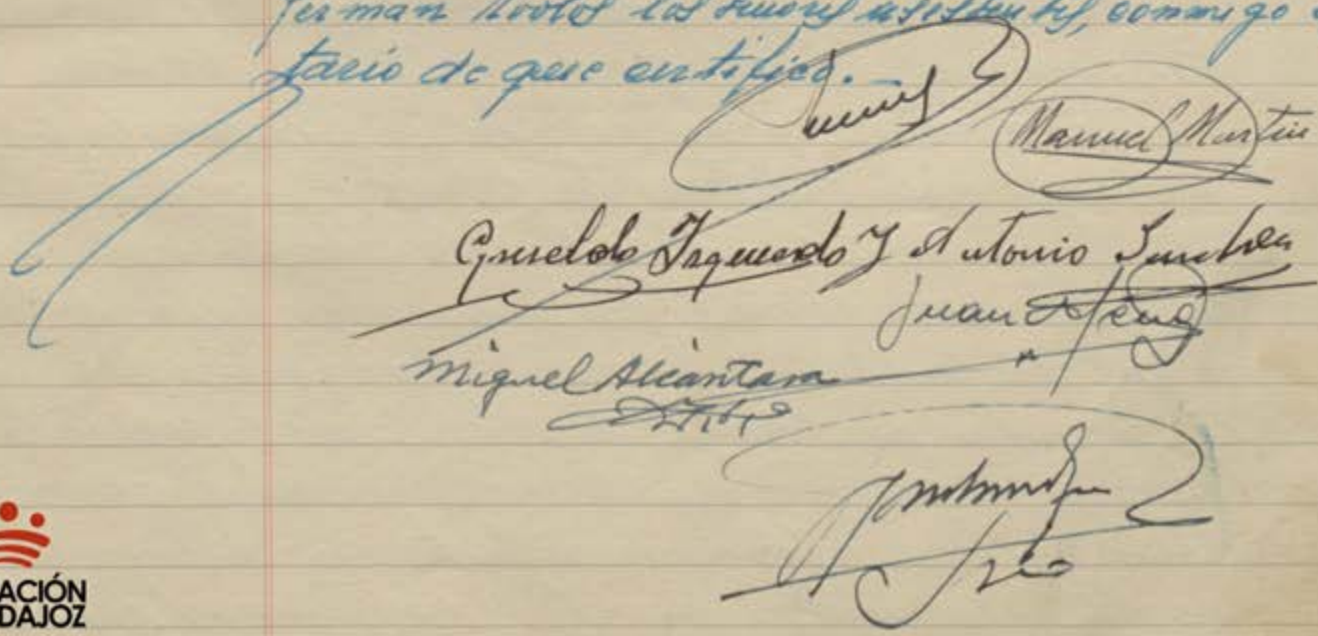 firman todos los señores asistentes, conmigo
tario de que certifico.-
Manuel Martin
Griseldo Izquierdo y Antonio Sanchez
Juan
Miguel Alcántara
Srio
ACIÓN
DAJOZ